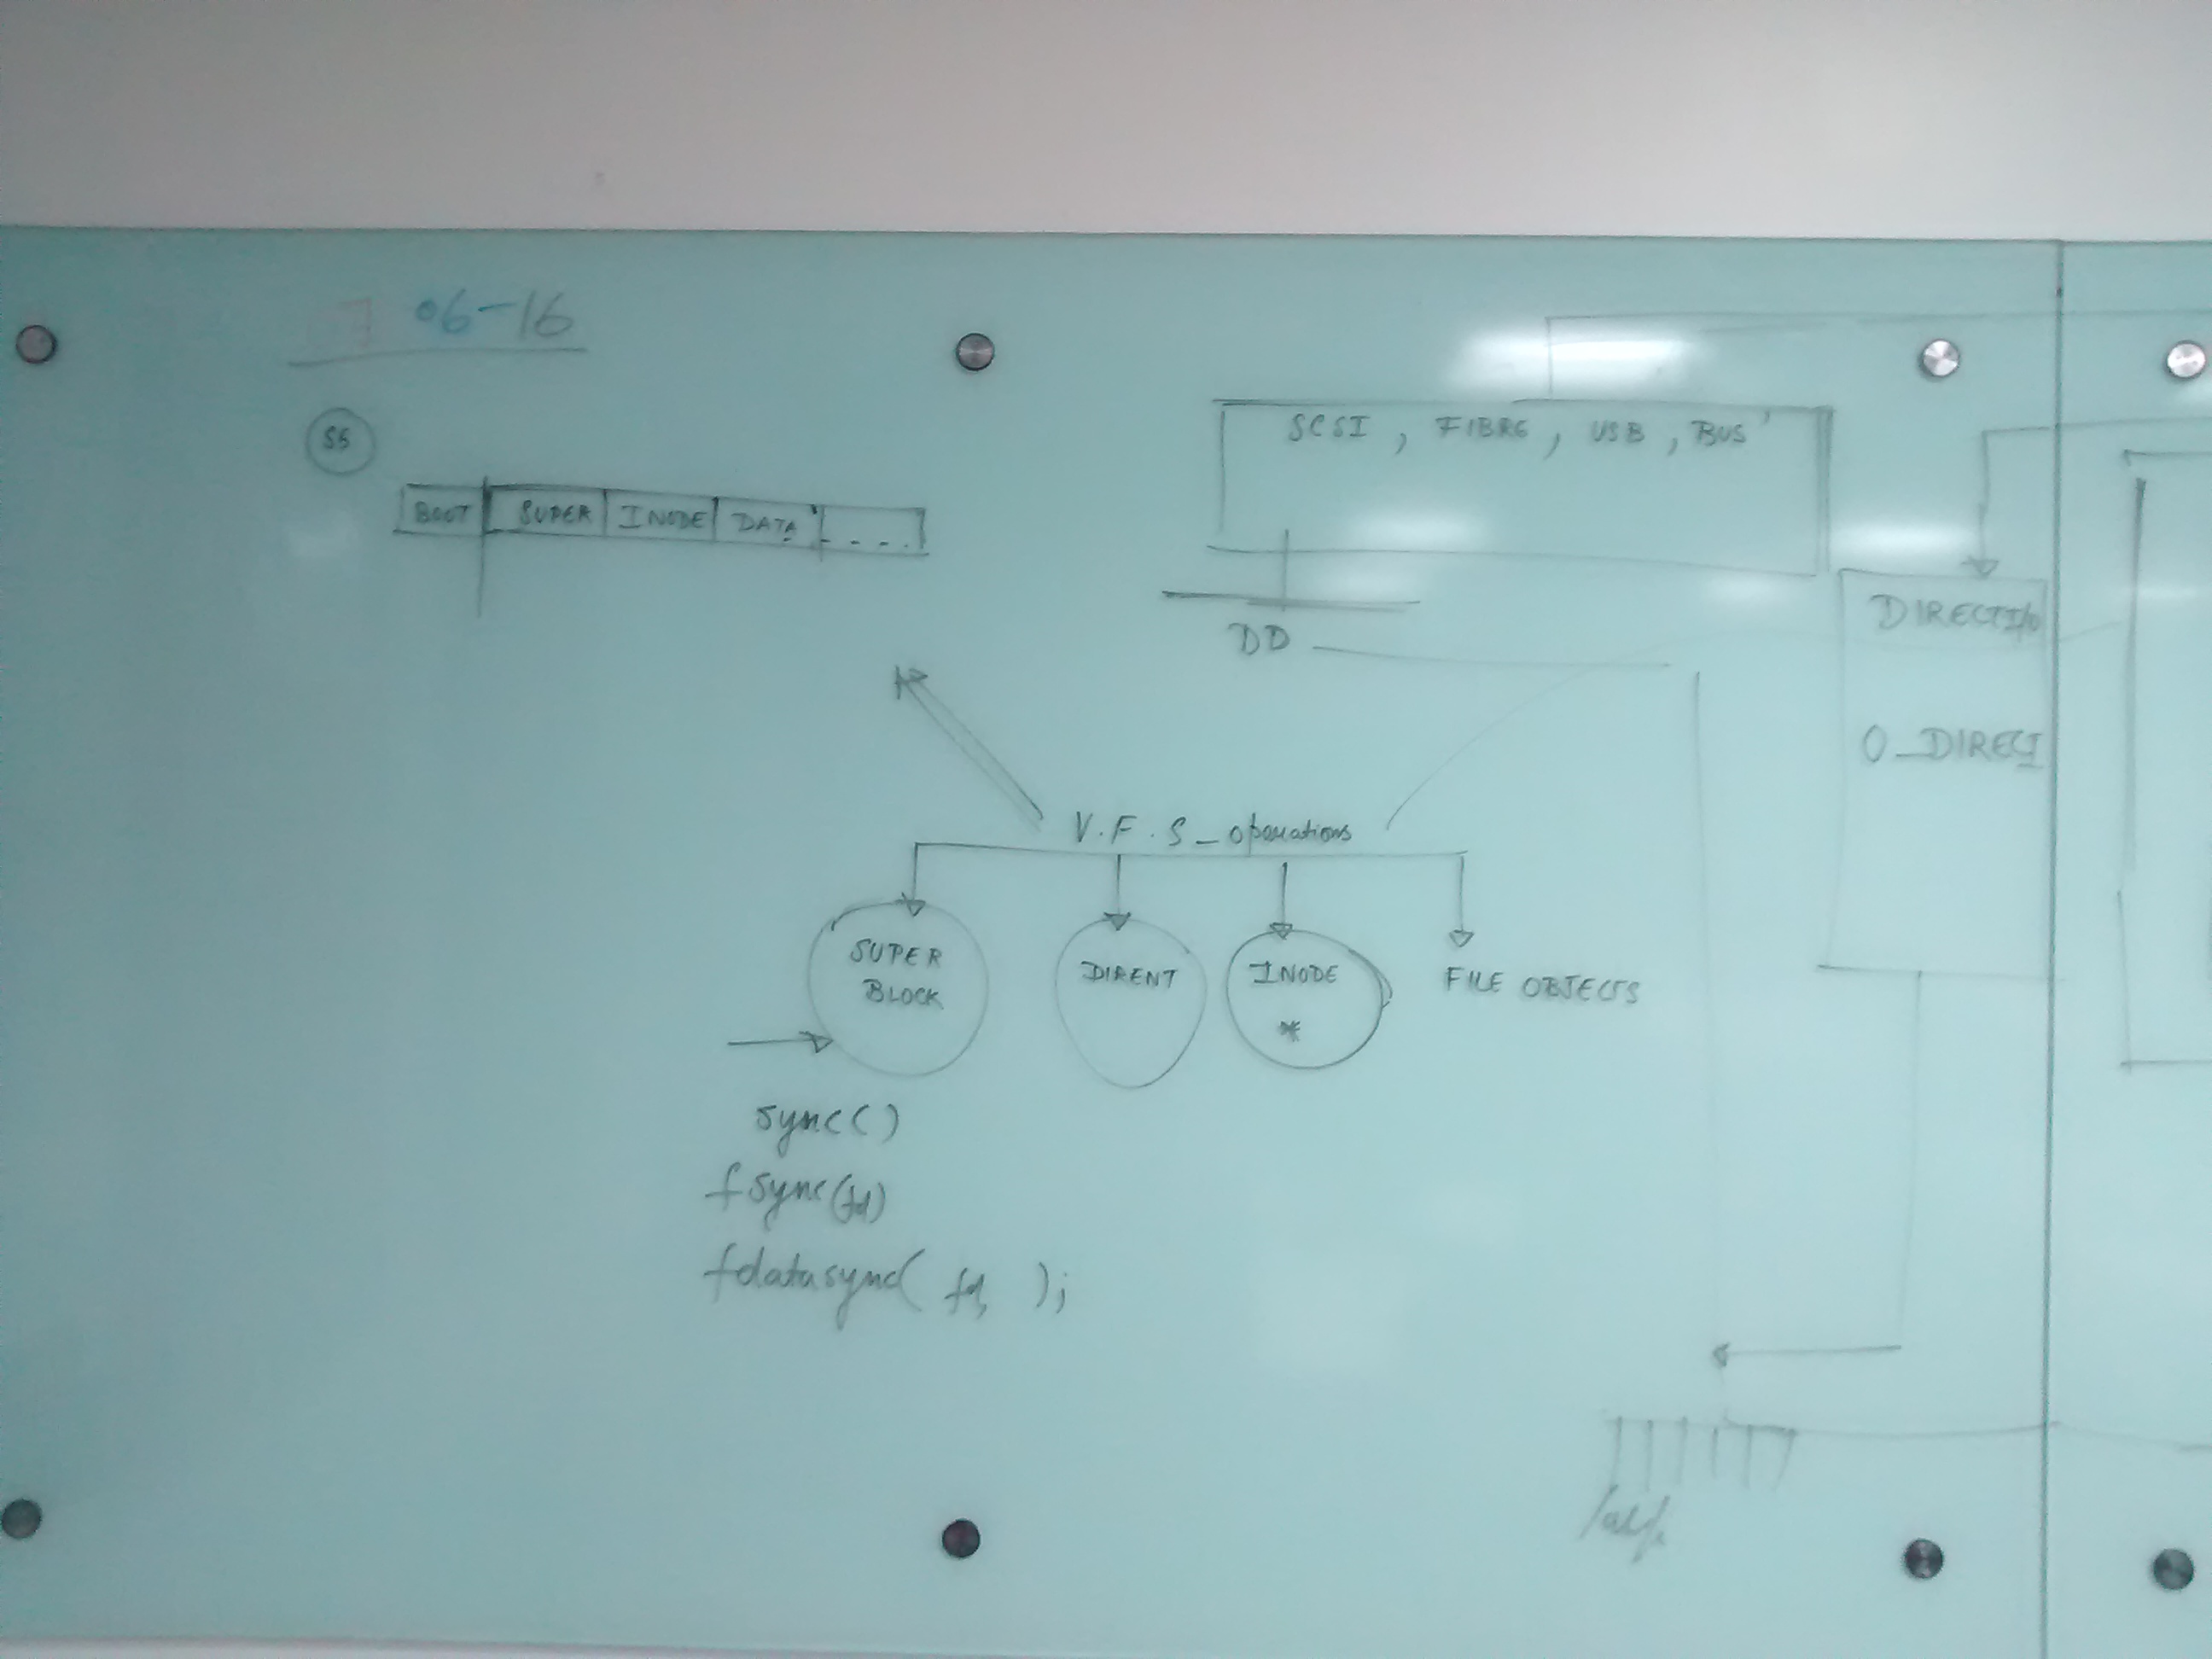 06-16
S5
BOOT SUPER INODE DATA ....
SCSI, FIBRE, USB, BUS
DD
DIRECT I/O
O_DIRECT
V.F.S_operations
SUPER BLOCK
DIRENT
INODE *
FILE OBJECTS
sync()
fsync(fd)
fdatasync( fd, );